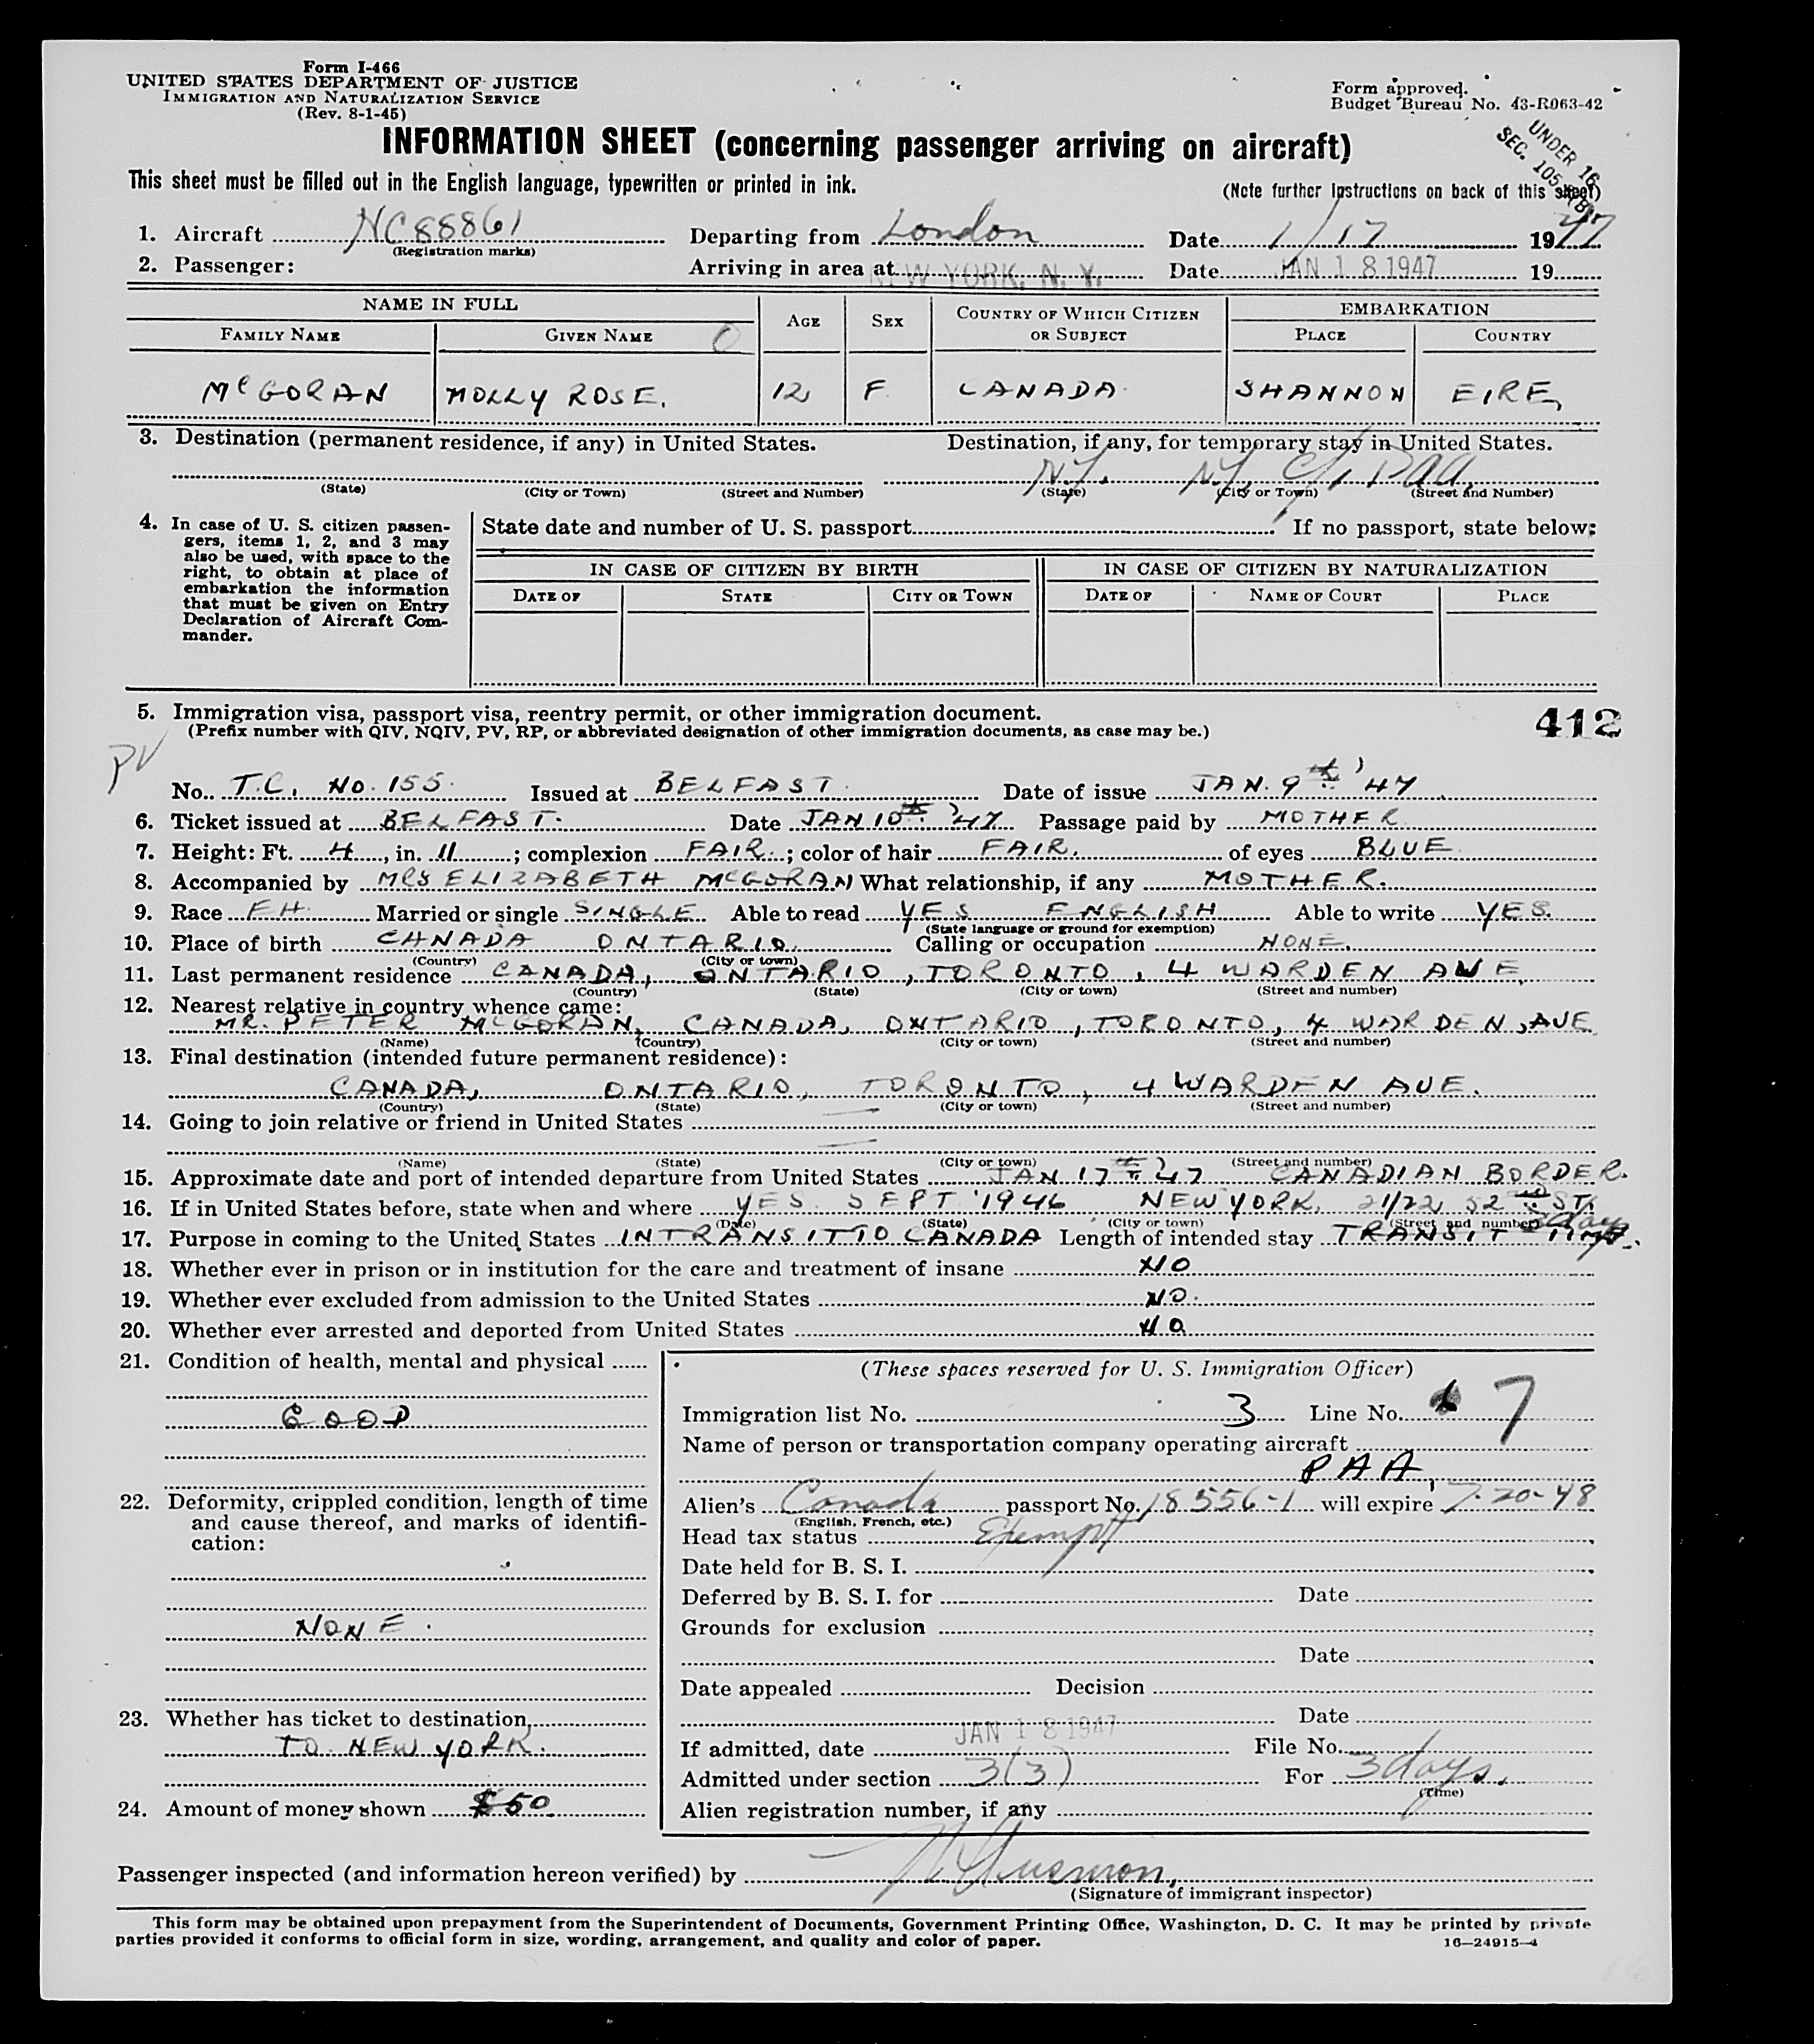 Form I-466
UNITED STATES DEPARTMENT OF JUSTICE
IMMIGRATION AND NATURALIZATION SERVICE
(Rev. 8-1-45)
Form approved.
Budget Bureau No. 43-R063-42
UNDER 16
SEC. 105.3(B)
INFORMATION SHEET (concerning passenger arriving on aircraft)
This sheet must be filled out in the English language, typewritten or printed in ink. (Note further instructions on back of this sheet)
1. Aircraft NC88861 Departing from London Date 1/17 1947
(Registration marks)
2. Passenger: Arriving in area at NEW YORK, N. Y. Date JAN 18 1947 19
NAME IN FULL AGE SEX COUNTRY OF WHICH CITIZEN OR SUBJECT EMBARKATION
FAMILY NAME GIVEN NAME PLACE COUNTRY
McGORAN MOLLY ROSE. 12 F. CANADA. SHANNON EIRE,
3. Destination (permanent residence, if any) in United States. Destination, if any, for temporary stay in United States.
N.Y. N.Y. c/o PAA,
(State) (City or Town) (Street and Number) (State) (City or Town) (Street and Number)
4. In case of U. S. citizen passengers, items 1, 2, and 3 may also be used, with space to the right, to obtain at place of embarkation the information that must be given on Entry Declaration of Aircraft Commander.
State date and number of U. S. passport If no passport, state below:
IN CASE OF CITIZEN BY BIRTH IN CASE OF CITIZEN BY NATURALIZATION
DATE OF STATE CITY OR TOWN DATE OF NAME OF COURT PLACE
5. Immigration visa, passport visa, reentry permit, or other immigration document.
(Prefix number with QIV, NQIV, PV, RP, or abbreviated designation of other immigration documents, as case may be.)
412
PV
No. T.C. NO. 155. Issued at BELFAST. Date of issue JAN. 9th '47
6. Ticket issued at BELFAST. Date JAN 10th '47 Passage paid by MOTHER
7. Height: Ft. 4, in. 11; complexion FAIR.; color of hair FAIR. of eyes BLUE
8. Accompanied by MRS ELIZABETH McGORAN What relationship, if any MOTHER.
9. Race EH. Married or single SINGLE Able to read YES ENGLISH Able to write YES.
(State language or ground for exemption)
10. Place of birth CANADA ONTARIO. Calling or occupation NONE.
(Country) (City or town)
11. Last permanent residence CANADA, ONTARIO, TORONTO, 4 WARDEN AVE,
(Country) (State) (City or town) (Street and number)
12. Nearest relative in country whence came:
MR. PETER McGORAN, CANADA, ONTARIO, TORONTO, 4 WARDEN, AVE
(Name) (Country) (City or town) (Street and number)
13. Final destination (intended future permanent residence):
CANADA, ONTARIO, TORONTO, 4 WARDEN AVE.
(Country) (State) (City or town) (Street and number)
14. Going to join relative or friend in United States
(Name) (State) (City or town) (Street and number)
15. Approximate date and port of intended departure from United States JAN 17th '47 CANADIAN BORDER.
16. If in United States before, state when and where YES. SEPT '1946 NEW YORK, 21/22 52nd ST.
(Date) (State) (City or town) (Street and number)
17. Purpose in coming to the United States INTRANSIT TO CANADA Length of intended stay TRANSIT 3 days
18. Whether ever in prison or in institution for the care and treatment of insane NO
19. Whether ever excluded from admission to the United States NO.
20. Whether ever arrested and deported from United States NO
21. Condition of health, mental and physical
GOOD
22. Deformity, crippled condition, length of time and cause thereof, and marks of identification:
NONE.
23. Whether has ticket to destination
TO NEW YORK.
24. Amount of money shown $50
(These spaces reserved for U. S. Immigration Officer)
Immigration list No. 3 Line No. 7
Name of person or transportation company operating aircraft
PAA,
Alien's Canada passport No. 18556-1 will expire 7-20-48
(English, French, etc.)
Head tax status Exempt
Date held for B. S. I.
Deferred by B. S. I. for Date
Grounds for exclusion
Date
Date appealed Decision
Date
If admitted, date JAN 18 1947 File No.
Admitted under section 3(3) For 3 days.
(Time)
Alien registration number, if any
Passenger inspected (and information hereon verified) by
(Signature of immigrant inspector)
This form may be obtained upon prepayment from the Superintendent of Documents, Government Printing Office, Washington, D. C. It may be printed by private
parties provided it conforms to official form in size, wording, arrangement, and quality and color of paper.
16—24915-4